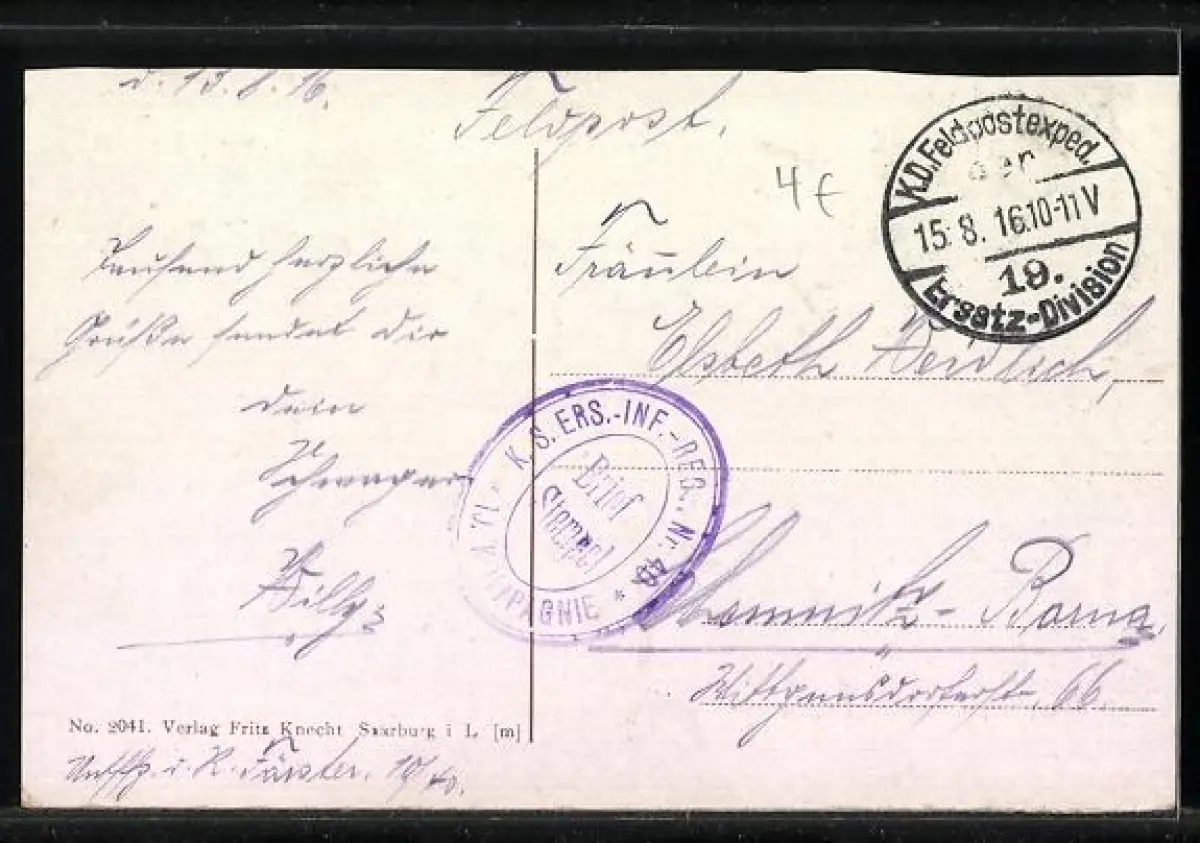 d. 13.8.16.
Feldpost.
4€
K.D. Feldpostexped.
der
15.8.16.10-11V
19.
Ersatz-Division
Tausend herzliche
Grüße sendet Dir
Dein
Schwager
Willy
Fräulein
Elsbeth Weidlich,
K. S. ERS.-INF.-REG. Nr. 40
* 10. KOMPAGNIE *
Brief
Stempel
Chemnitz-Borna
Wittgensdorferstr. 66
No. 2041. Verlag Fritz Knecht Saarburg i L. [m]
Förster, 10/40.